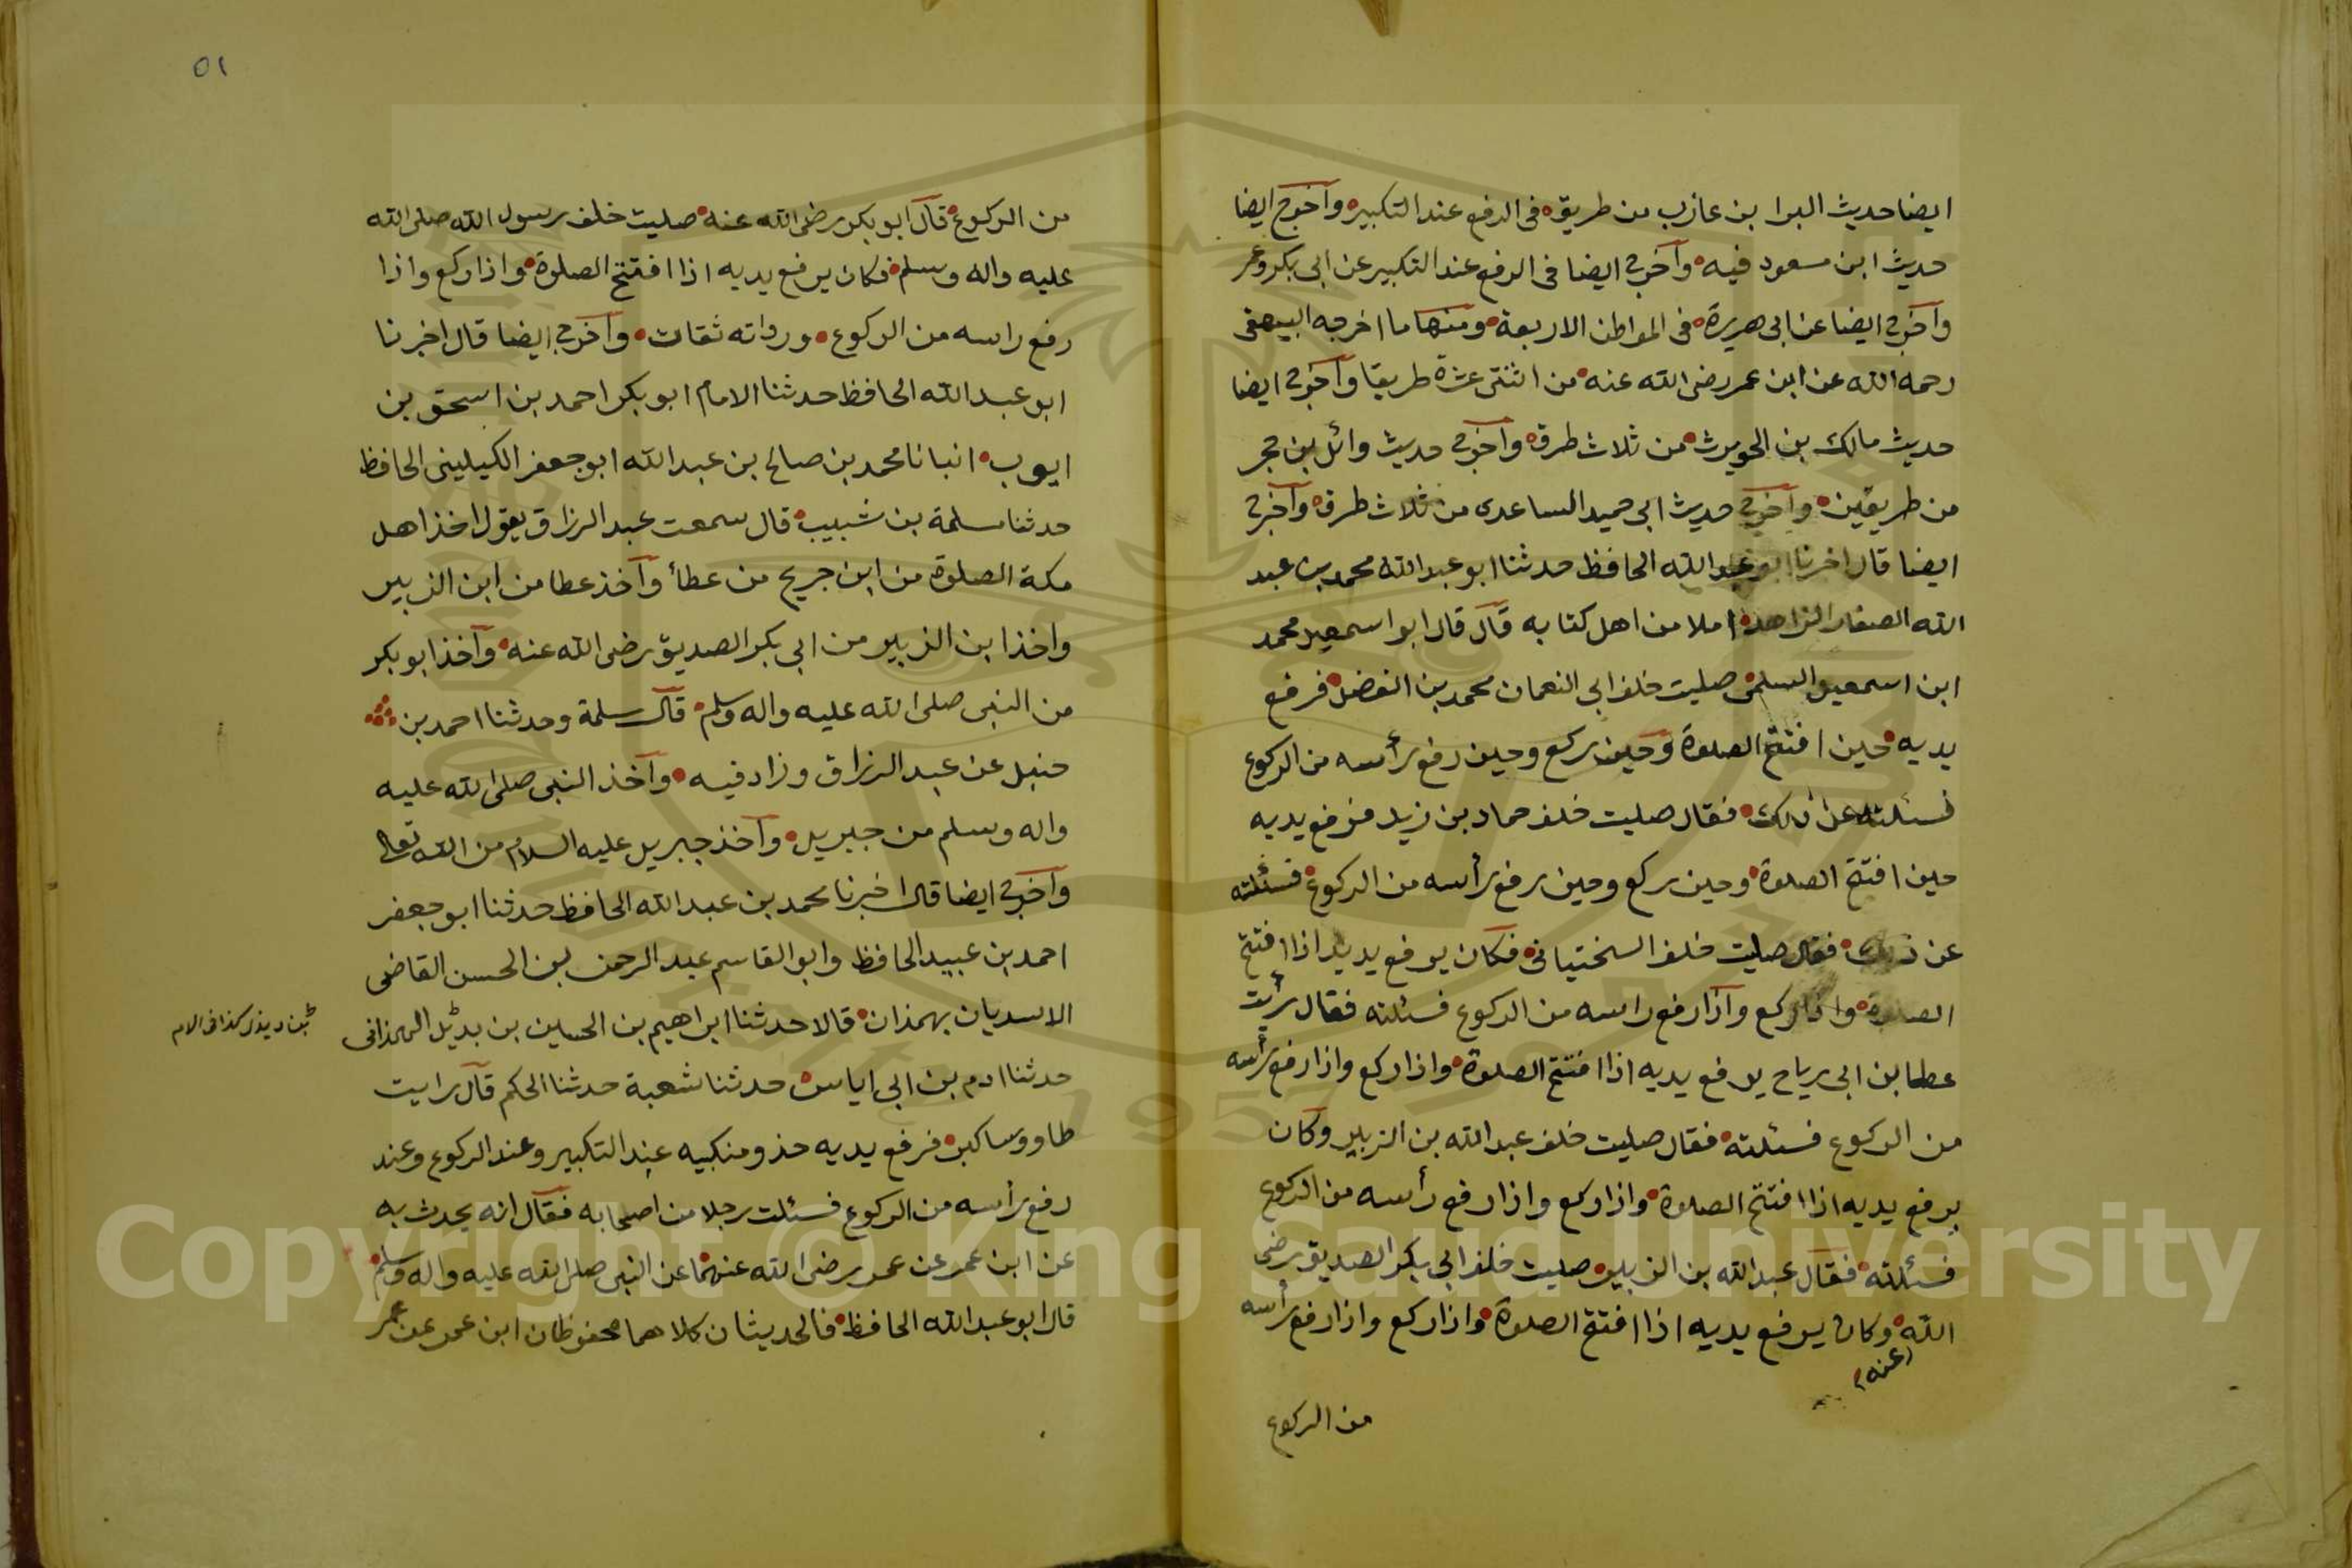 ايضا حديث البرا بن عازب من طريقه في الرفع عند التكبير واخرج ايضا
حديث ابن مسعود فيه واخرج ايضا في الرفع عند التكبير عن ابى بكر وعمر
واخرج ايضا عن ابى هريرة في المواطن الاربعة ومنها ما اخرجه البيهقى
رحمه الله عن ابن عمر رضى الله عنه من اثنتى عشرة طريقا واخرج ايضا
حديث مالك بن الحويرث من ثلاث طرق واخرج حديث وائل بن حجر
من طريقين واخرج حديث ابى حميد الساعدى من ثلاث طرق واخرج
ايضا قال اخبرنا ابو عبد الله الحافظ حدثنا ابو عبد الله محمد بن عبد
الله الصفار الزاهد املا من اهل كتابه قال قال ابو اسمعيل محمد
ابن اسمعيل السلمى صليت خلف ابى النعمان محمد بن الفضل فرفع
يديه حين افتتح الصلوة وحين ركع وحين رفع رأسه من الركوع
فسئلته عن ذلك فقال صليت خلف حماد بن زيد فرفع يديه
حين افتتح الصلوة وحين ركع وحين رفع رأسه من الركوع فسئلته
عن ذلك فقال صليت خلف السختيانى فكان يرفع يديه اذا افتتح
الصلوة واذا ركع واذا رفع راسه من الركوع فسئلته فقال رأيت
عطا بن ابى رياح يرفع يديه اذا افتتح الصلوة واذا ركع واذا رفع رأسه
من الركوع فسئلته فقال صليت خلف عبد الله بن الزبير وكان
يرفع يديه اذا افتتح الصلوة واذا ركع واذا رفع رأسه من الركوع
فسئلته فقال عبد الله بن الزبير صليت خلف ابى بكر الصديق رضى
الله وكان يرفع يديه اذا افتتح الصلوة واذا ركع واذا رفع رأسه
(عنه)
من الركوع
٥١
من الركوع قال ابو بكر رضى الله عنه صليت خلف رسول الله صلى الله
عليه واله وسلم فكان يرفع يديه اذا افتتح الصلوة واذا ركع واذا
رفع راسه من الركوع ورواته ثقات واخرج ايضا قال اخبرنا
ابو عبد الله الحافظ حدثنا الامام ابو بكر احمد بن اسحق بن
ايوب انبانا محمد بن صالح بن عبد الله ابو جعفر الكيلينى الحافظ
حدثنا سلمة بن شبيب قال سمعت عبد الرزاق يقول اخذ اهل
مكة الصلوة من ابن جريح من عطأ واخذ عطا من ابن الزبير
واخذ ابن الزبير من ابى بكر الصديق رضى الله عنه واخذ ابو بكر
من النبى صلى الله عليه واله وسلم قال سلمة وحدثنا احمد بن
حنبل عن عبد الرزاق وزاد فيه واخذ النبى صلى الله عليه
واله وسلم من جبريل واخذ جبريل عليه السلام من الله تعالى
واخرج ايضا قال اخبرنا محمد بن عبد الله الحافظ حدثنا ابو جعفر
احمد بن عبيد الحافظ وابو القاسم عبد الرحمن بن الحسن القاضى
الاسديان بهمذان قالا حدثنا ابراهيم بن الحسين بن بديل الهمذانى
حدثنا ادم بن ابى اياس حدثنا شعبة حدثنا الحكم قال رايت
طاووسا كبر فرفع يديه حذو منكبيه عند التكبير وعند الركوع وعند
رفع رأسه من الركوع فسئلت رجلا من اصحابه فقال انه يحدث به
عن ابن عمر عن عمر رضى الله عنهما عن النبى صلى الله عليه واله وسلم
قال ابو عبد الله الحافظ فالحديثان كلاهما محفوظان ابن عمر عن عمر
Copyright © King Saud University
1957